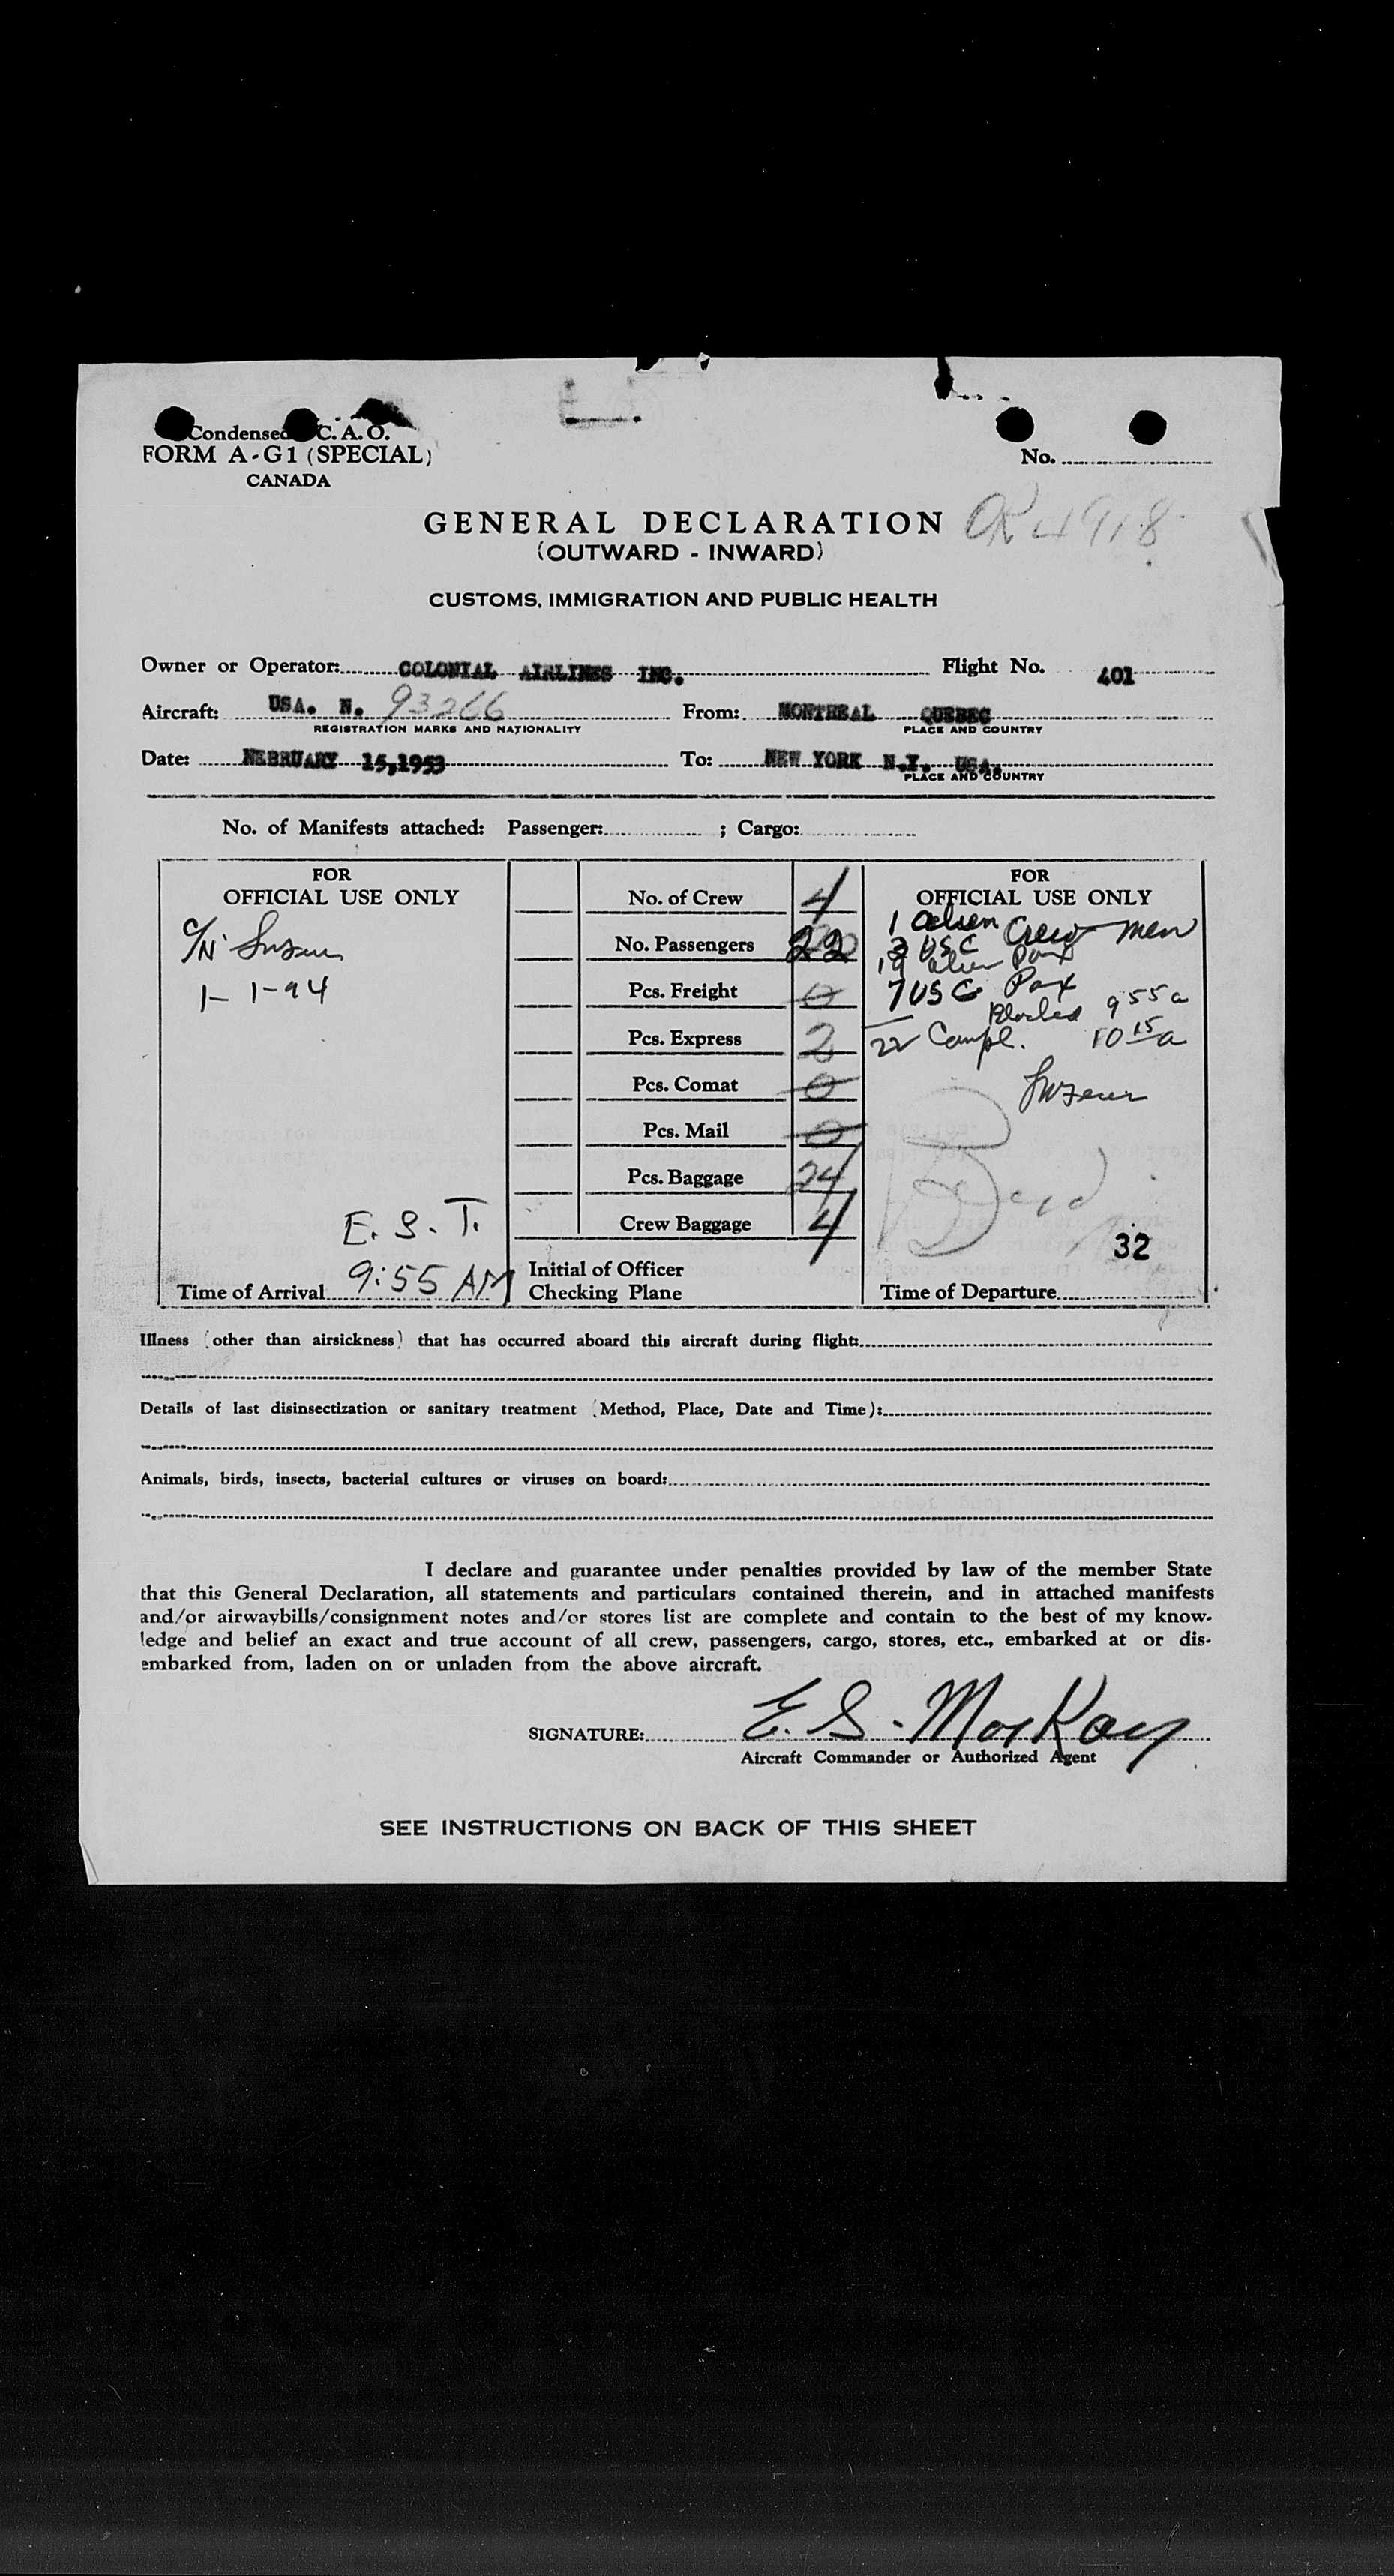 Condensed C. A. O.
FORM A-G1 (SPECIAL)
CANADA
No.
GENERAL DECLARATION
OK 4918
(OUTWARD - INWARD)
CUSTOMS, IMMIGRATION AND PUBLIC HEALTH
Owner or Operator: COLONIAL AIRLINES INC. Flight No. 401
Aircraft: USA. N. 93266 From: MONTREAL QUEBEC
REGISTRATION MARKS AND NATIONALITY PLACE AND COUNTRY
Date: NEBRUARY 15,1953 To: NEW YORK N.Y. USA.
PLACE AND COUNTRY
No. of Manifests attached: Passenger: ; Cargo:
FOR
OFFICIAL USE ONLY
1-1-94
E. S. T.
Time of Arrival 9:55 AM
No. of Crew 4
No. Passengers 22
Pcs. Freight 0
Pcs. Express 2
Pcs. Comat 0
Pcs. Mail 0
Pcs. Baggage 24
Crew Baggage 4
Initial of Officer
Checking Plane
FOR
OFFICIAL USE ONLY
1 Crew men
3 USC
alien Pax
7 USC Pax
Blocked 9 55 a
22 Compl. 10 15 a
32
Time of Departure
Illness (other than airsickness) that has occurred aboard this aircraft during flight:
Details of last disinsectization or sanitary treatment (Method, Place, Date and Time):
Animals, birds, insects, bacterial cultures or viruses on board:
I declare and guarantee under penalties provided by law of the member State
that this General Declaration, all statements and particulars contained therein, and in attached manifests
and/or airwaybills/consignment notes and/or stores list are complete and contain to the best of my know-
ledge and belief an exact and true account of all crew, passengers, cargo, stores, etc., embarked at or dis-
embarked from, laden on or unladen from the above aircraft.
SIGNATURE: E. S. MacKay
Aircraft Commander or Authorized Agent
SEE INSTRUCTIONS ON BACK OF THIS SHEET